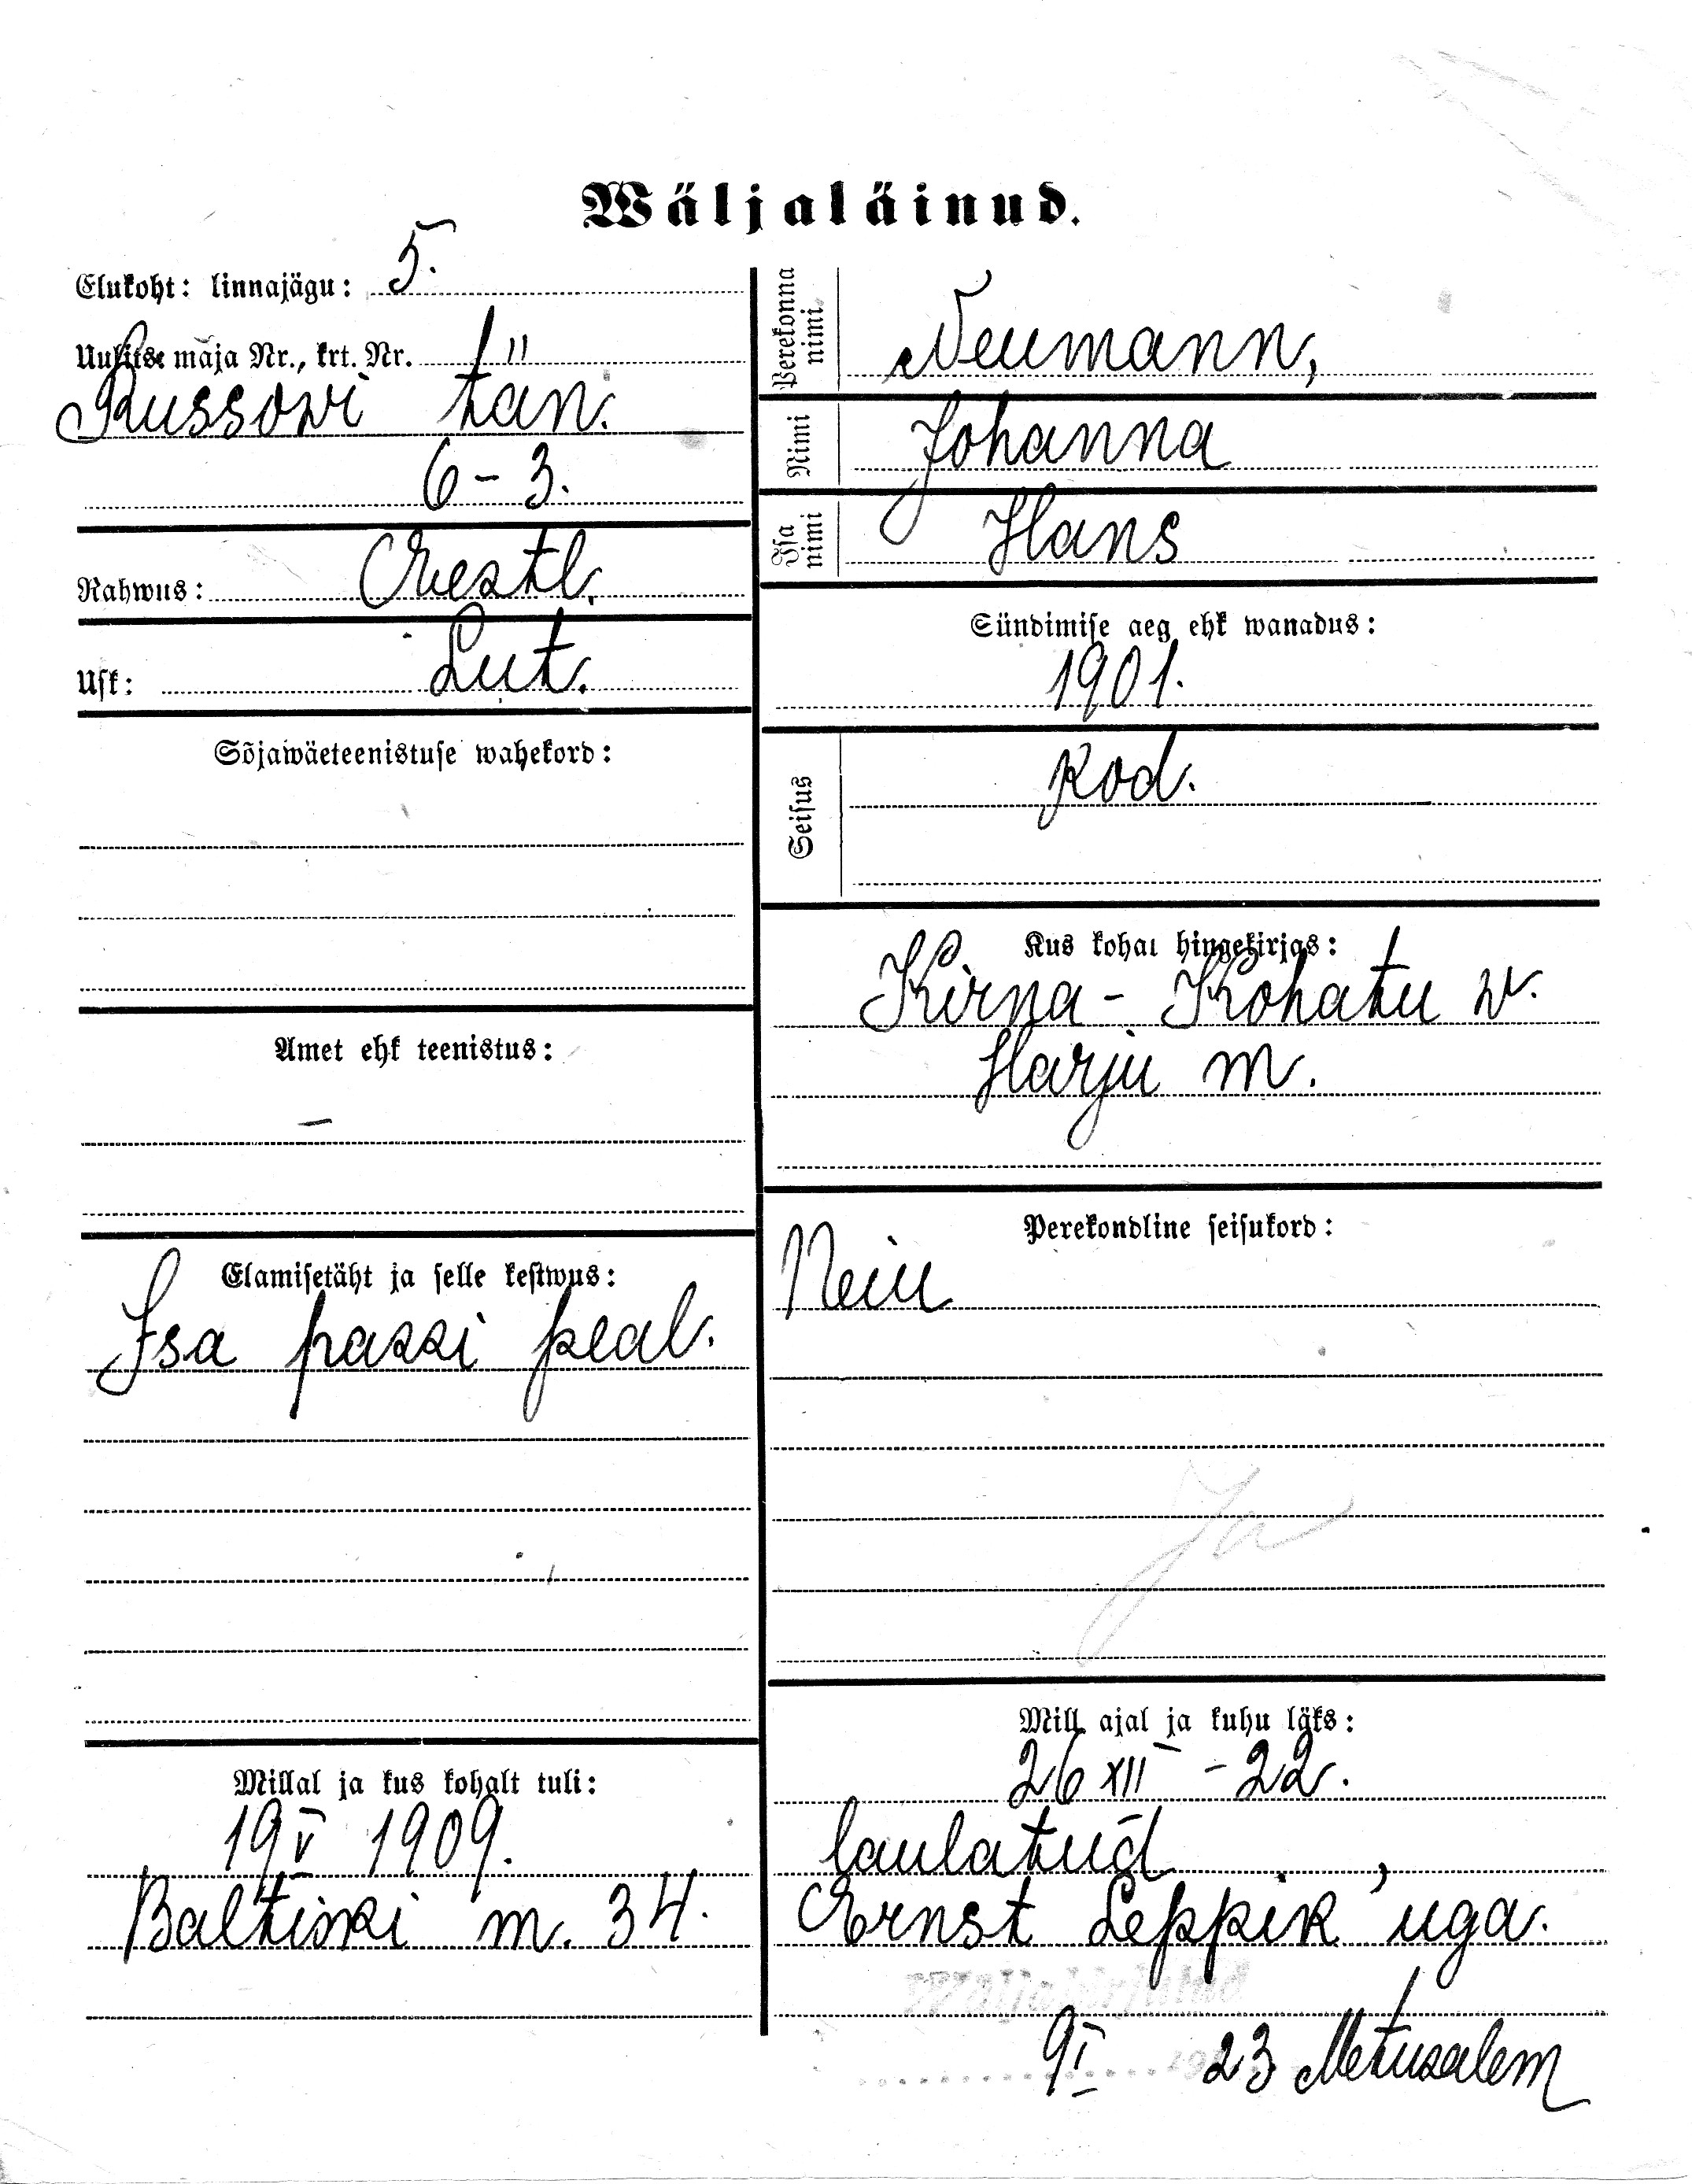 Wäljaläinud.
Elukoht: linnajägu: 5.
Uulitse maja Nr., krt. Nr.
Russowi tän.
6 - 3.
Rahwus: Eestl.
Usk: Lut.
Sõjawäeteenistuse wahekord:
Amet ehk teenistus:
–
Elamisetäht ja selle kestwus:
Isa passi peal.
Millal ja kus kohalt tuli:
19 V 1909.
Baltiski m. 34.
Perekonna nimi Neumann,
Nimi Johanna
Isa nimi Hans
Sündimise aeg ehk wanadus:
1901.
Seisus kod.
Kus kohal hingekirjas:
Kirna - Kohatu w.
Harju m.
Perekondline seisukord:
Neiu
Ja
Mill ajal ja kuhu läks:
26 XII - 22.
laulatud
Ernst Leppik'uga.
9 I 23 Metusalem